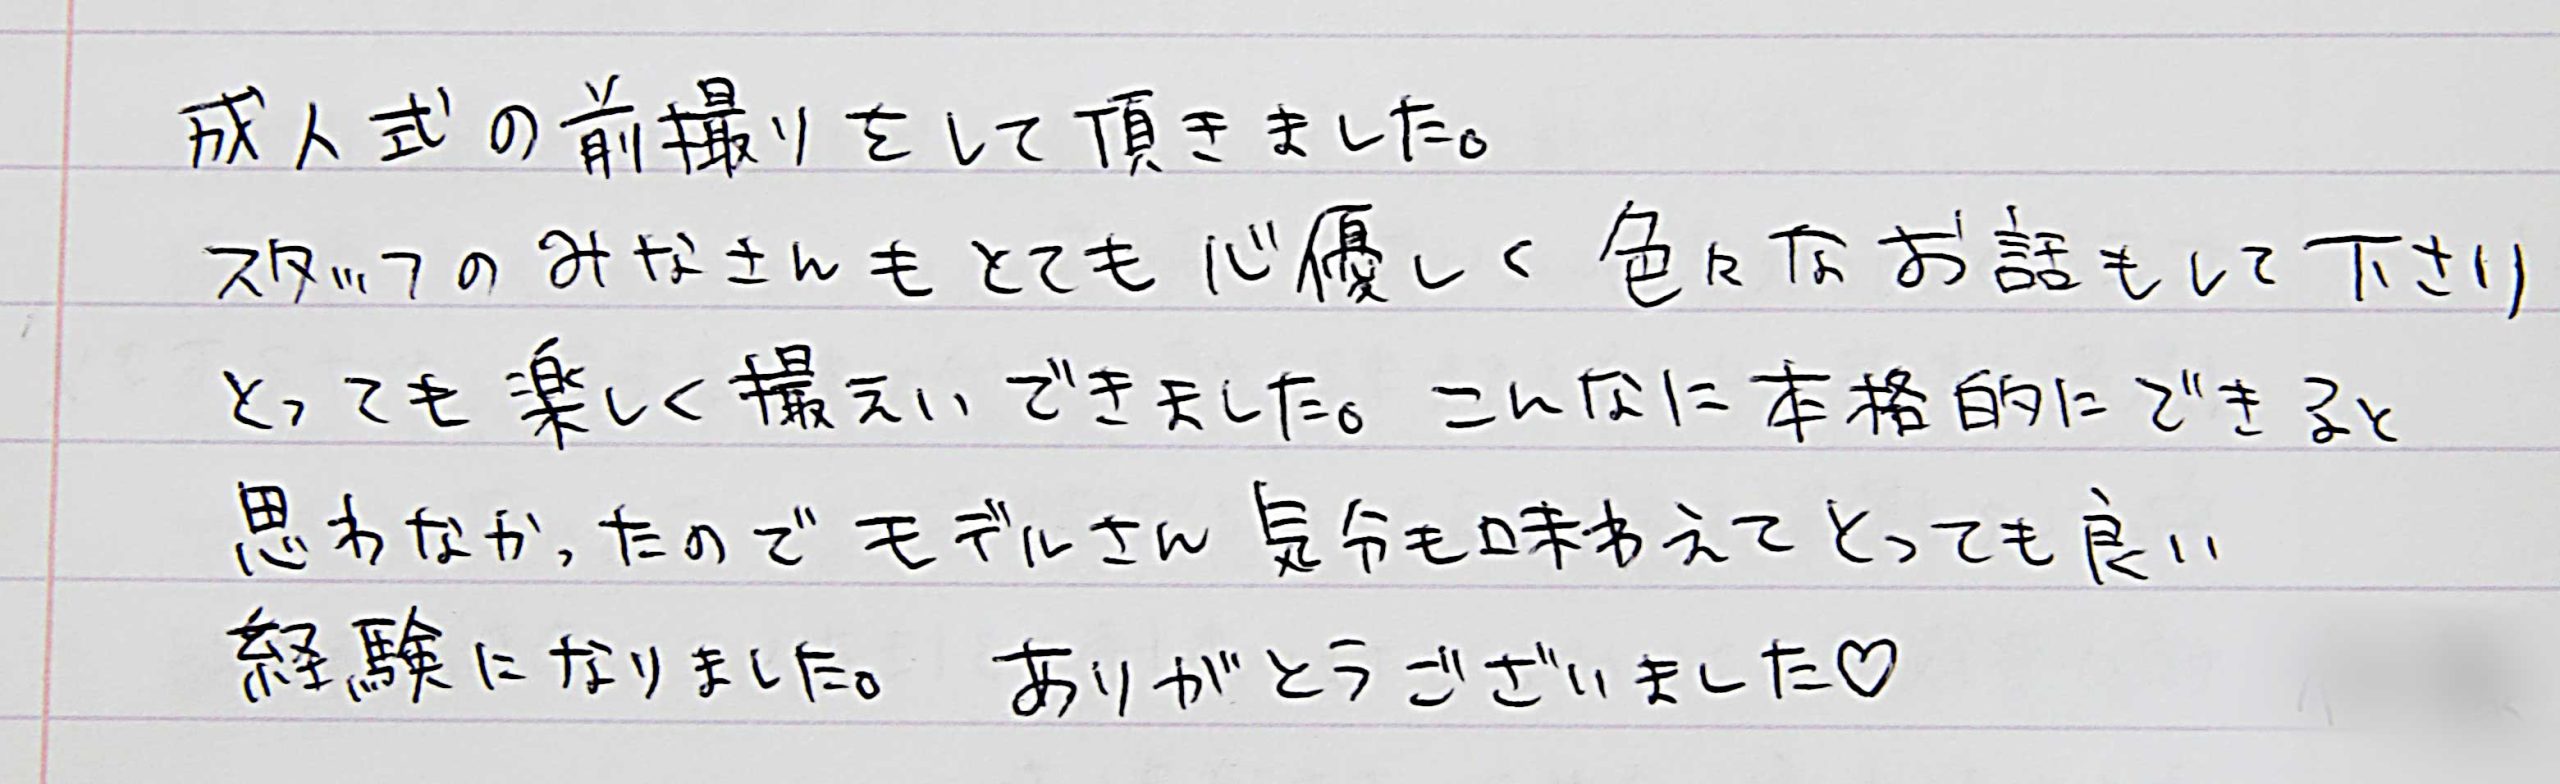 成人式の前撮りをして頂きました。
スタッフのみなさんもとても心優しく色々なお話もして下さり
とっても楽しく撮えいできました。こんなに本格的にできると
思わなかったのでモデルさん気分も味わえてとっても良い
経験になりました。 ありがとうございました♡